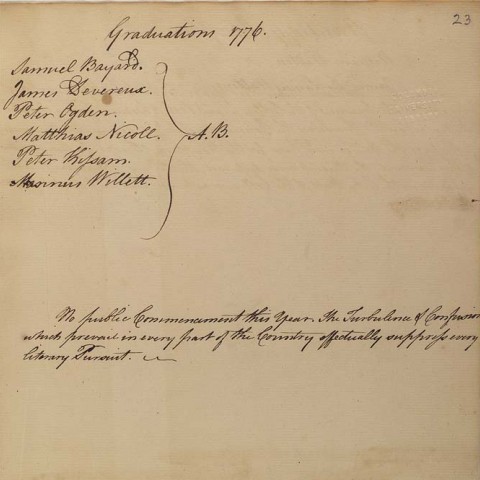 23
Graduations 1776.
Samuel Bayard.
James Devereux.
Peter Ogden.
Matthias Nicoll.
A.B.
Peter Kissam.
Marinus Willett.
No public Commencement this Year. The Turbulence & Confusion
which prevail in every part of the Country effectually suppress every
literary Pursuit.